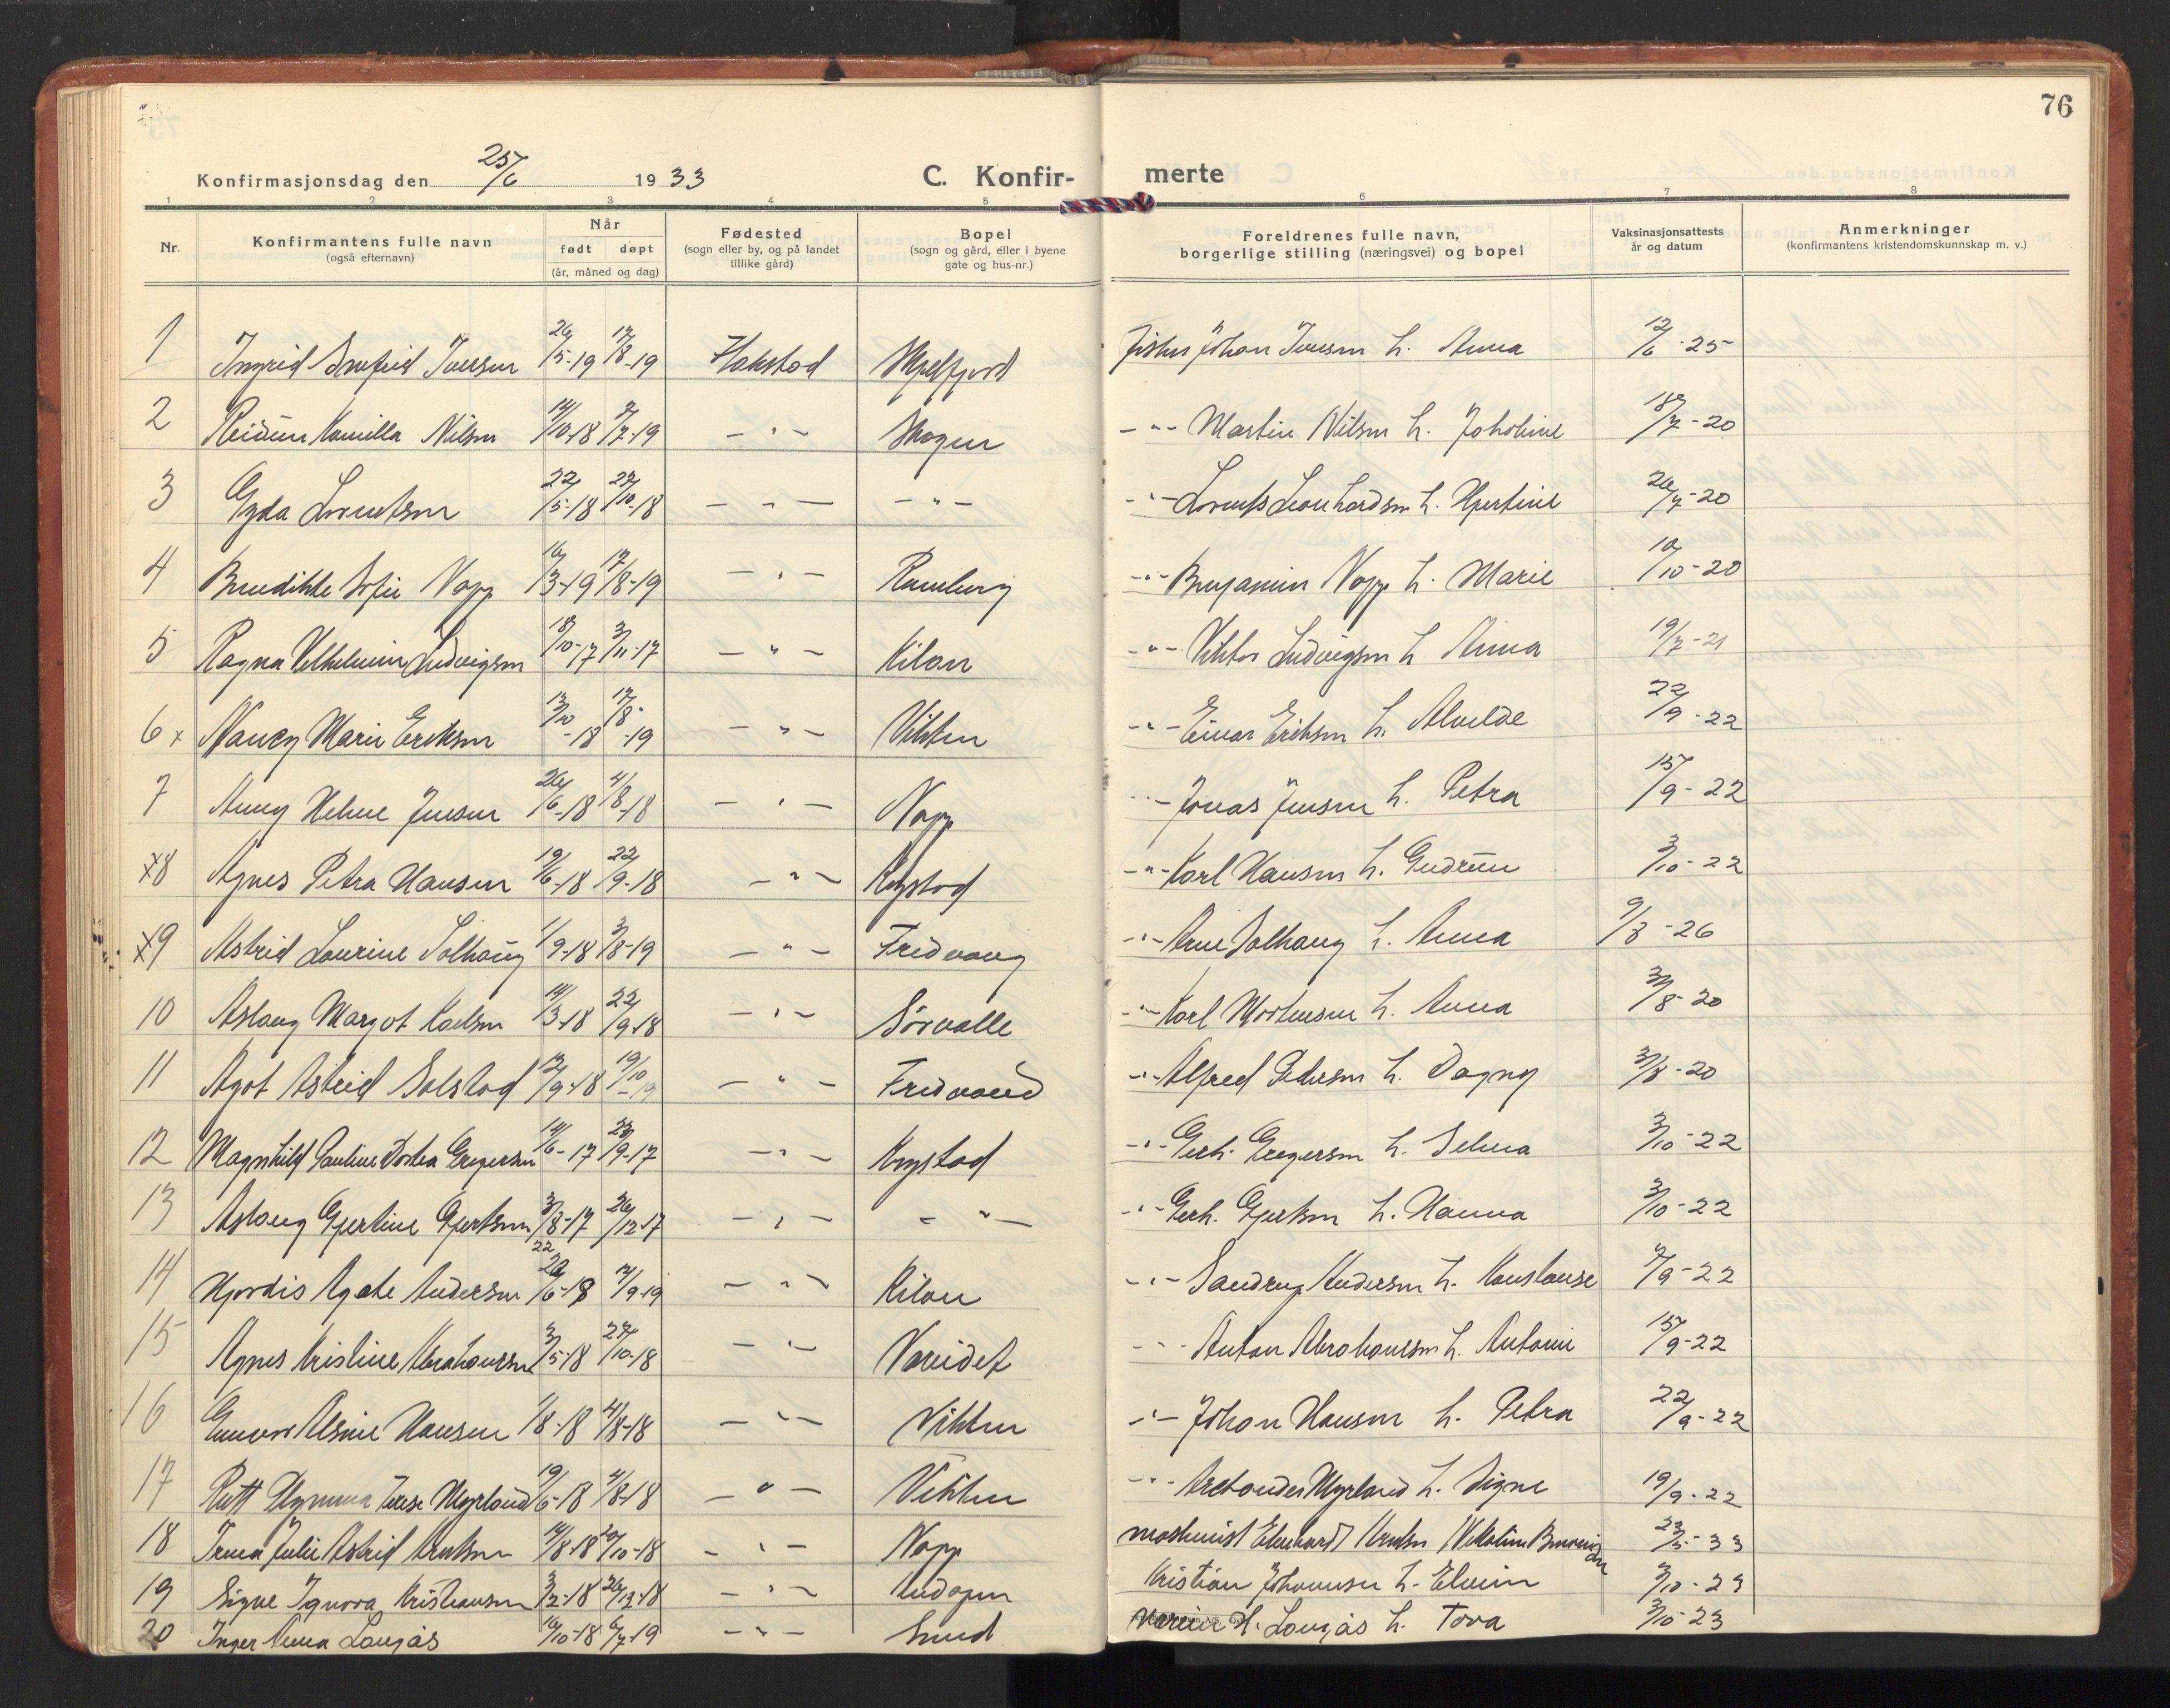 76
Konfirmasjonsdag den 25/6 1933 C. Konfir- merte
1 2 3 4 5 6 7 8
Nr. Konfirmantens fulle navn (også efternavn) Når født døpt (år, måned og dag) Fødested (sogn eller by, og på landet tillike gård) Bopel (sogn og gård, eller i byene gate og hus-nr.) Foreldrenes fulle navn, borgerlige stilling (næringsvei) og bopel Vaksinasjonsattests år og datum Anmerkninger (konfirmantens kristendomskunnskap m. v.)
1 Ingrid Iversen 26/5-19 17/8-19 Hakstad Skjelfjord Fisker Johan Iversen h. Anna 12/6-25
2 Reidun Kamilla Nilsen 14/10-18 2/2-19 - " - Skogen - " - Martin Nilsen h. 18/7-20
3 Gyda Lorentsen 22/5-18 27/10-18 - " - - " - - " - Lorents Leonhardsen h. Hjertine 26/7-20
4 Benedikte Sofie Napp 16/3-19 17/8-19 - " - Ramberg - " - Benjamin Napp h. Marie 10/10-20
5 Ragna Vilhelmine Ludvigsen 18/10-17 3/11-17 - " - Kilan - " - Viktor Ludvigsen h Anna 19/7-21
6 x Nancy Marie Eriksen 13/10-18 17/8-19 - " - Vikten - " - Einar Eriksen h. Alvilde 22/9-22
7 Anny Helene Jensen 26/6-18 4/8-18 - " - Napp - " - Jonas Jensen h. Petra 15/9-22
x8 Agnes Petra Hansen 19/6-18 22/9-18 - " - Krystad - " - Karl Hansen h. Gudrun 3/10-22
x9 Astrid Laurine Solhaug 1/9-18 3/8-19 - " - Fredvang - " - Arne Solhaug h. Anna 9/3-26
10 Aslaug Margot Karlsen 14/3-18 22/9-18 - " - Sörvalle - " - Karl Mortensen h. Anna 3/8-20
11 Agot Astrid Solstad 12/9-18 19/10-19 - " - Fredvand - " - Alfred Pedersen h. Dagny 3/8-20
12 Magnhild Pauline Dortea Gregersen 14/6-17 23/9-17 - " - Krystad - " - Gerh. Gregersen h. Selma 3/10-22
13 Aslaug Gjertine Gjertsen 3/8-17 26/12-17 - " - - " - - " - Gerh. Gjertsen h. Hanna 3/10-22
14 Hjordis Agate Andersen 22/6-18 14/9-19 - " - Kilan - " - Sandrup Andersen h. Konstanse 7/9-22
15 Agnes Kristine Abrahamsen 3/5-18 27/10-18 - " - Vareidet - " - Anton Abrahamsen h. Antonie 15/9-22
16 Gunvor Alsine Hansen 1/8-18 4/8-18 - " - Vikten - " - Johan Hansen h. Petra 22/9-22
17 Rutt Terese Myrland 19/6-18 4/8-18 - " - Vikten - " - Myrland h. Signe 19/9-22
18 Irma Julie Astrid Arntsen 14/8-18 20/10-18 - " - Napp maskinist Arntsen 23/5-33
19 Signe Ignora Kristiansen 3/2-18 26/12-18 - " - Andopen Kristian Johansen h. Elvine 3/10-23
20 Inger Anna Langås 16/10-18 6/7-19 - " - Sund H. Langås h. Tora 3/10-23